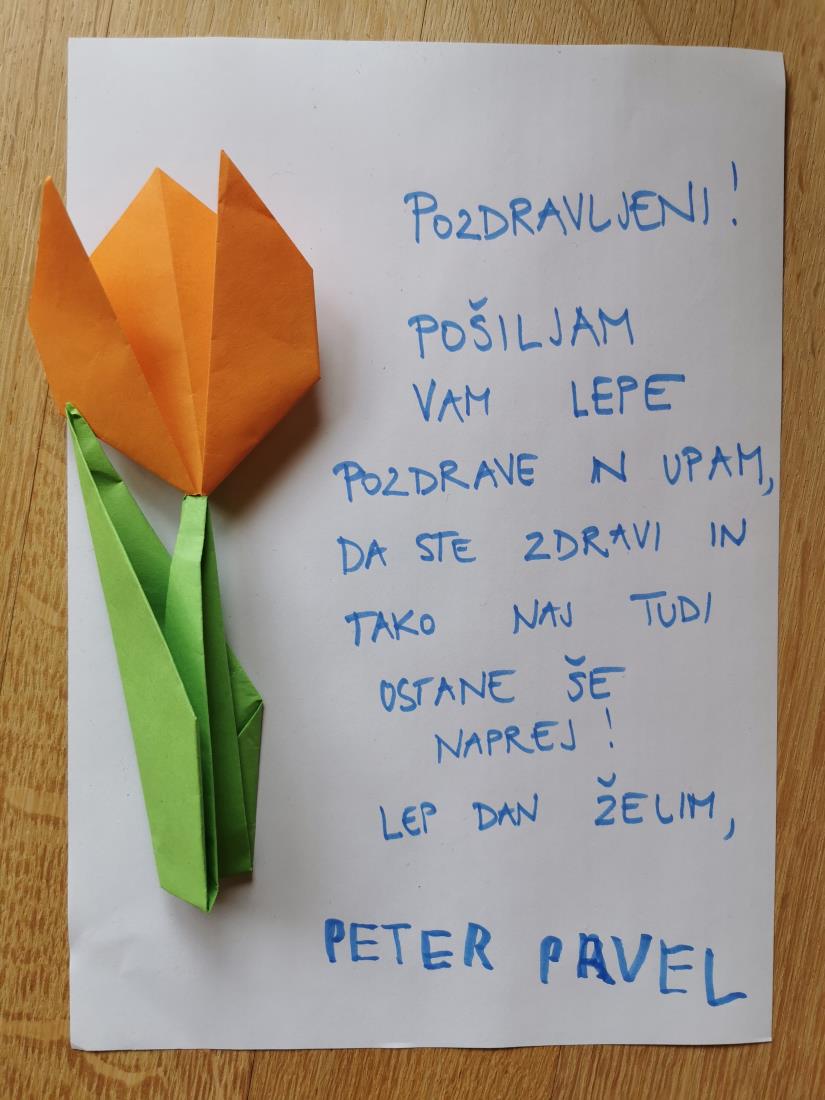 POZDRAVLJENI!
POŠILJAM
VAM LEPE
POZDRAVE IN UPAM,
DA STE ZDRAVI IN
TAKO NAJ TUDI
OSTANE ŠE
NAPREJ!
LEP DAN ŽELIM,
PETER PAVEL